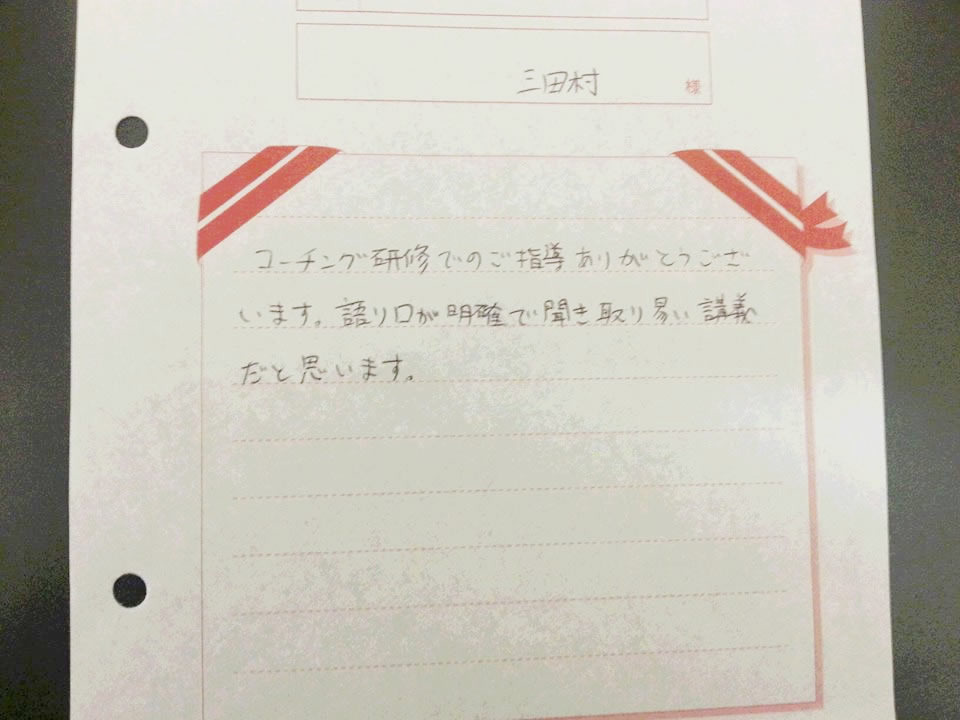 三田村 様
コーチング研修でのご指導ありがとうござ
います。語り口が明確で聞き取り易い講義
だと思います。